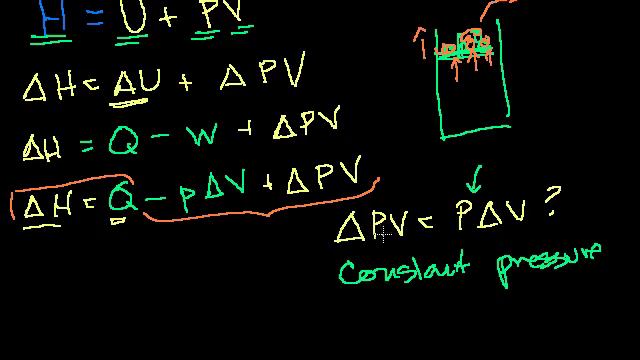 H = U + PV
ΔH = ΔU + ΔPV
ΔH = Q - W + ΔPV
ΔH = Q - PΔV + ΔPV
ΔPV = PΔV ?
Constant pressure